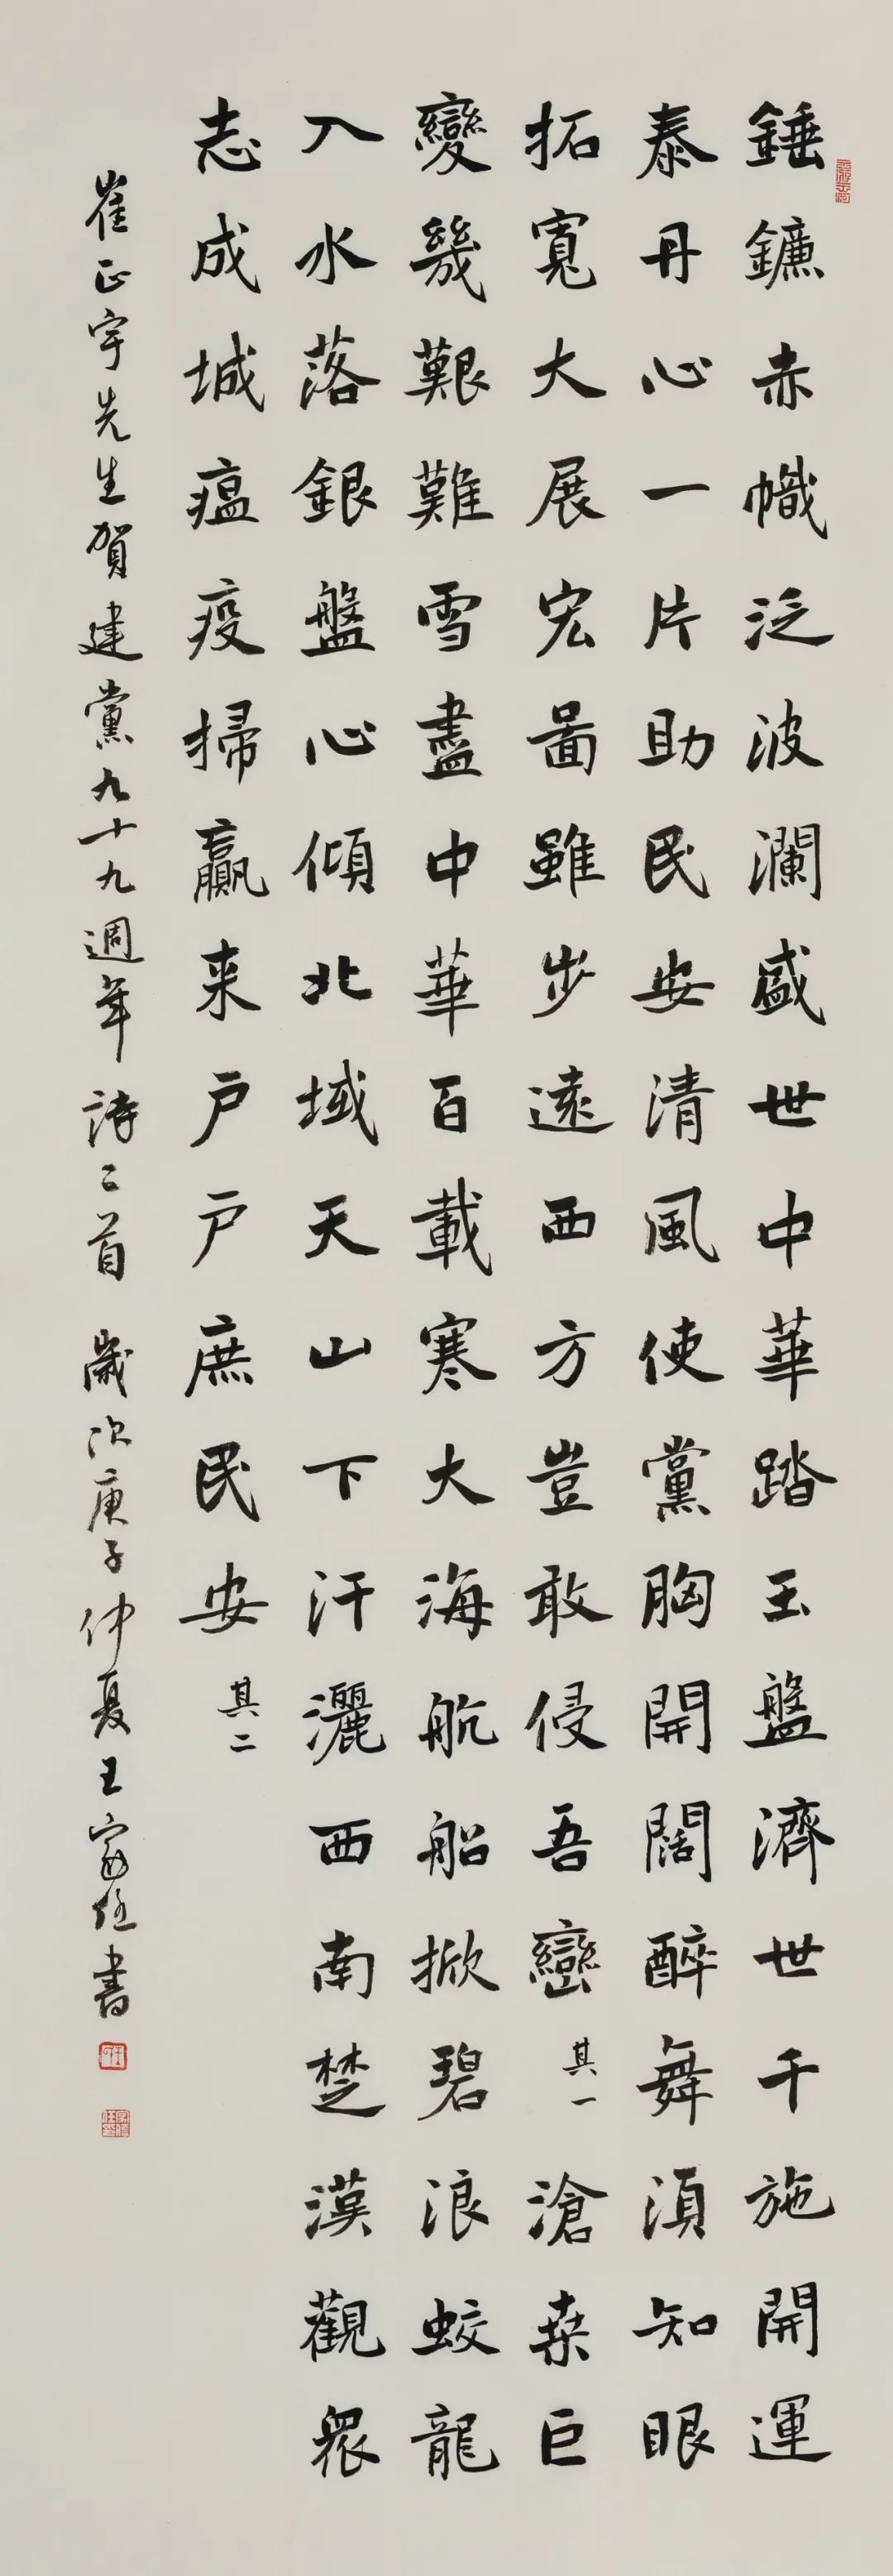 錘鐮赤幟泛波瀾盛世中華踏玉盤濟世千施開運
泰丹心一片助民安清風使黨胸開闊醉舞須知眼
拓寬大展宏啚雖步遠西方豈敢侵吾巒 其一 滄桒巨
變幾艱難雪盡中華百載寒大海航船掀碧浪蛟龍
入水落銀盤心傾北域天山下汗灑西南楚漢觀眾
志成城瘟疫掃贏来户户庶民安 其二
崔正宇先生賀建黨九十九週年詩二首 歲次庚子仲夏王家書